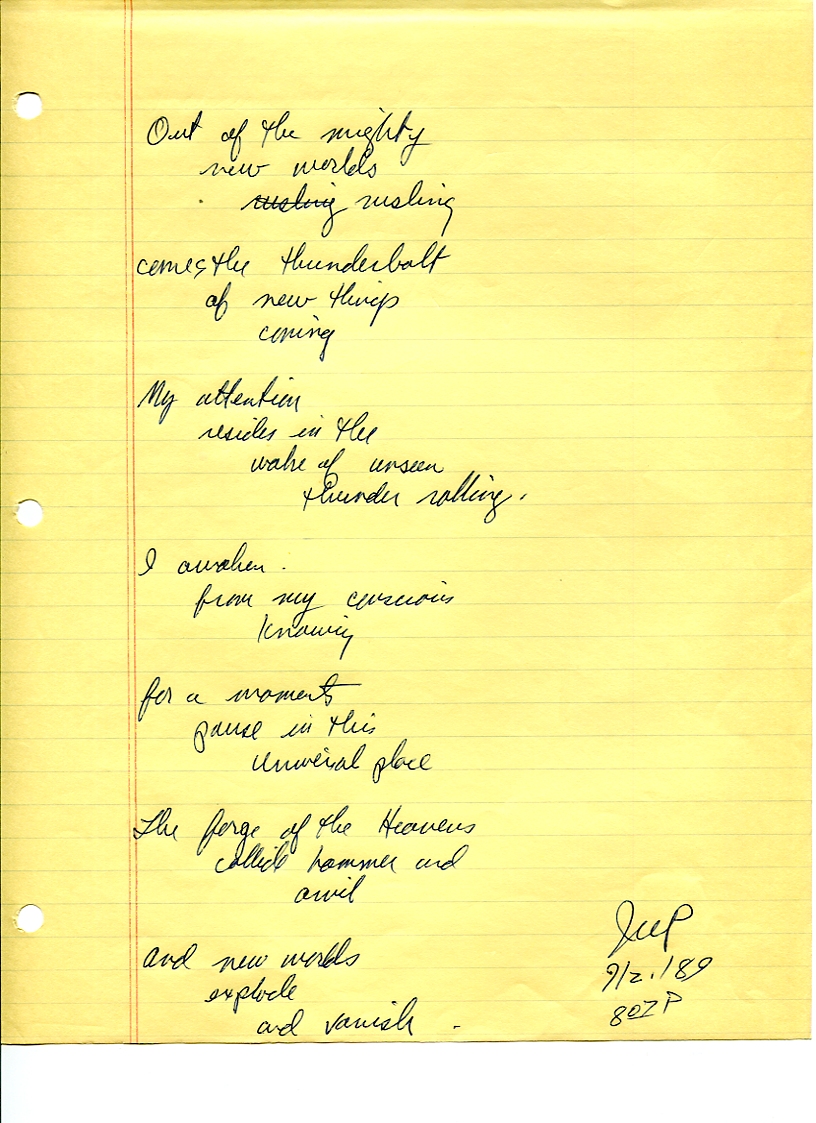 Out of the mighty
new worlds
rushing rushing
comes the thunderbolt
of new things
coming
My attention
resides in the
wake of unseen
thunder rolling.
I awaken.
from my conscious
knowing
for a moments
pause in this
universal place
The forge of the Heavens
collide hammer and
anvil
and new worlds
explode
and vanish.
9/2./89
802 P